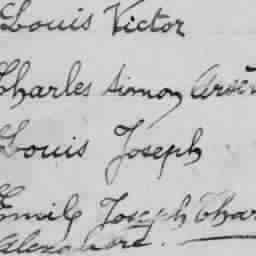 Louis Victor
Charles Simon
Louis Joseph
Emile Joseph
Alexandre.